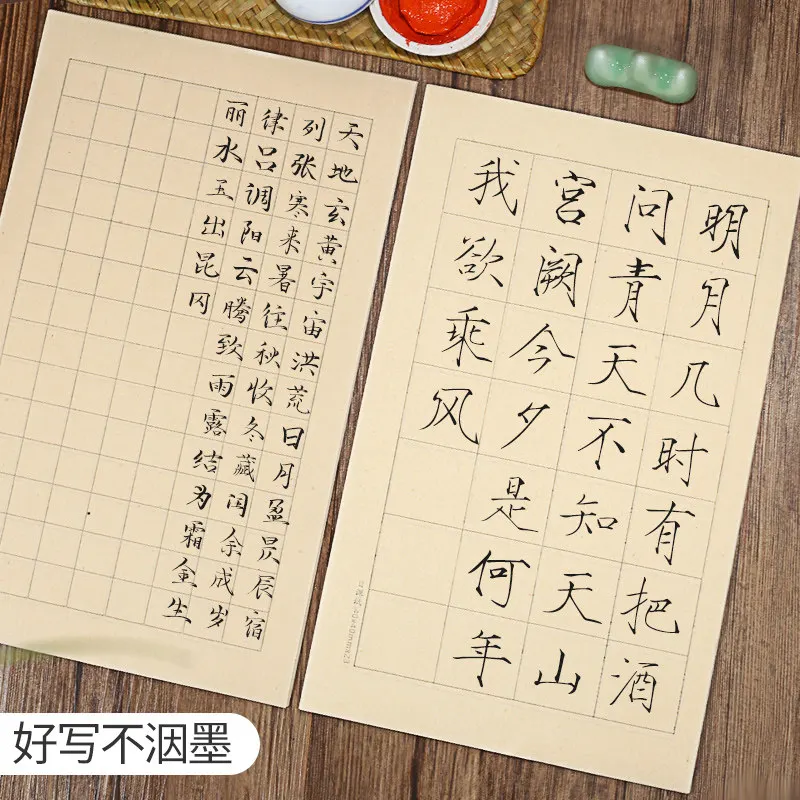 天地玄黄宇宙洪荒日月盈昃辰宿
列张寒来暑往秋收冬藏闰余成岁
律吕调阳云腾致雨露结为霜金生
丽水玉出昆冈
明月几时有把酒
问青天不知天山
宫阙今夕是何年
我欲乘风
好写不洇墨